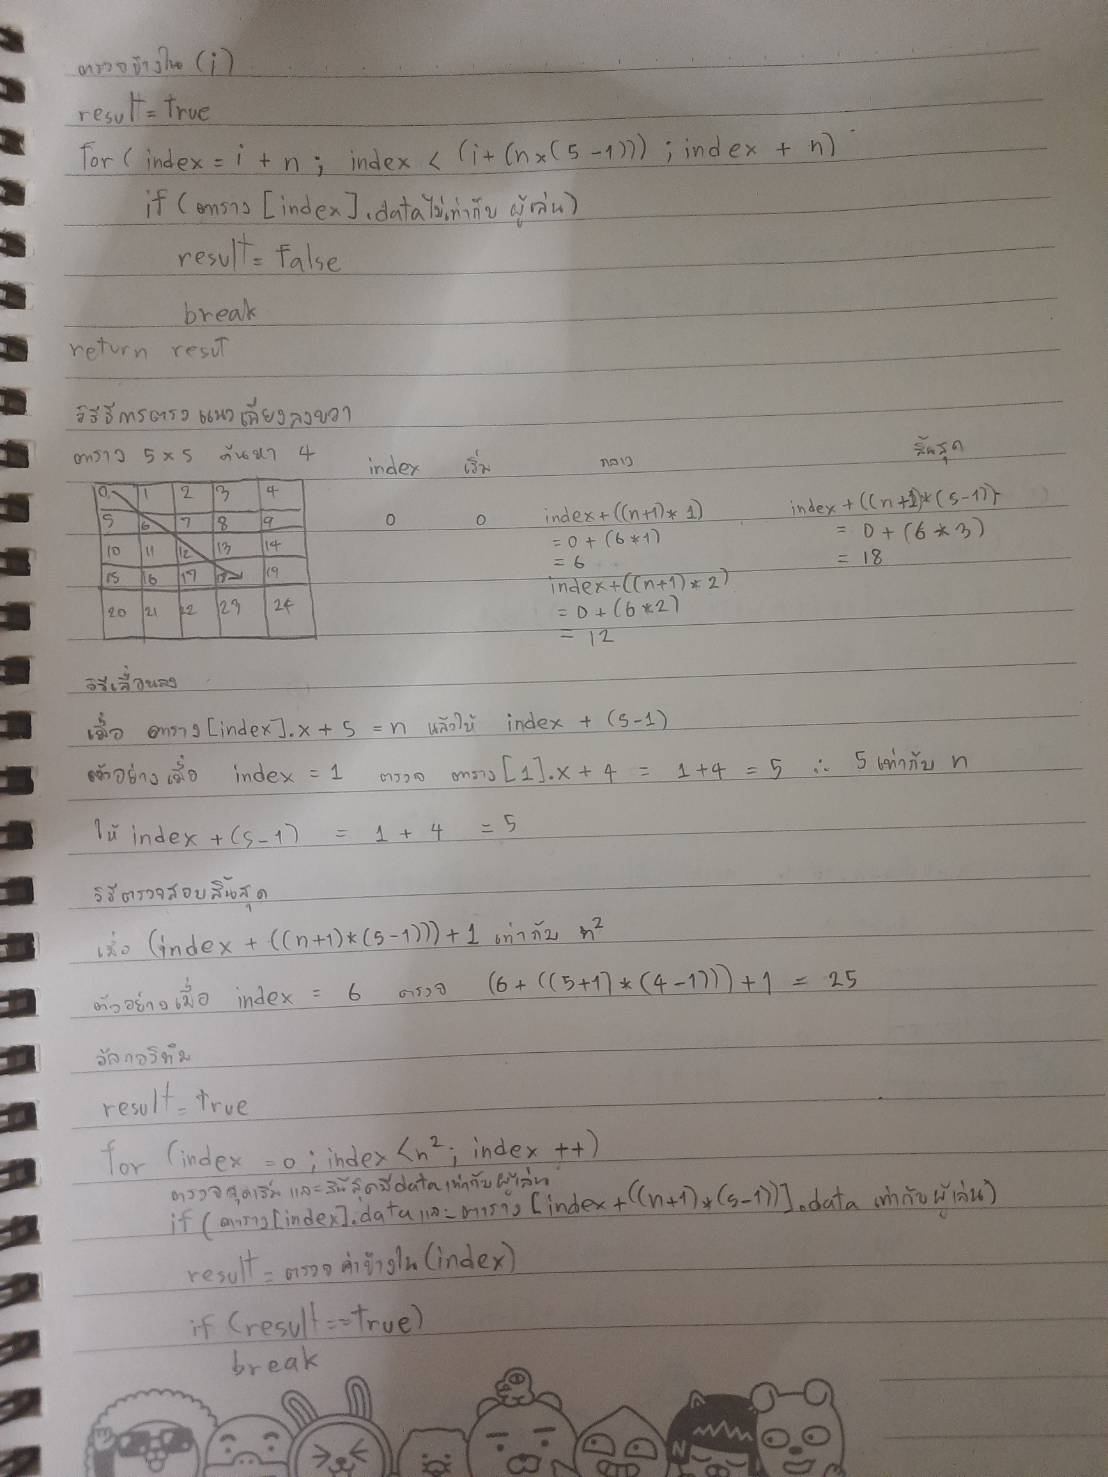 ตรวจข้างใน (i)
result = true
for ( index = i + n ; index < (i + (n × (5 - 1))) ; index + n)
if ( ตาราง [index] . data ไม่เท่ากับ ผู้เล่น)
result = false
break
return resut
วิธีการตรวจ แนวเฉียงลงขวา
ตาราง 5 × 5 ค้นหา 4
index เริ่ม กลาง สิ้นสุด
0 1 2 3 4
5 6 7 8 9
10 11 12 13 14
15 16 17 18 19
20 21 22 23 24
0 0 index + ((n+1) * 1) index + ((n+1) * (s-1))
= 0 + (6 * 1) = 0 + (6 * 3)
= 6 = 18
index + ((n+1) * 2)
= 0 + (6 * 2)
= 12
วิธีเลื่อนลง
เมื่อ ตาราง [index] . x + s = n แล้วให้ index + (s-1)
ตัวอย่าง เมื่อ index = 1 ตรวจ ตาราง [1] . x + 4 = 1 + 4 = 5 ∴ 5 เท่ากับ n
ให้ index + (s-1) = 1 + 4 = 5
วิธีตรวจสอบสิ้นสุด
เมื่อ (index + ((n+1) * (s-1))) + 1 เท่ากับ n²
ตัวอย่าง เมื่อ index = 6 ตรวจ (6 + ((5+1) * (4-1))) + 1 = 25
อัลกอริทึม
result = true
for (index = 0 ; index < n² ; index ++)
ตรวจจุดเริ่ม และ สิ้นสุดมี data เท่ากับ ผู้เล่น
if ( ตาราง [index] . data และ ตาราง [index + ((n+1) * (s-1))] . data เท่ากับ ผู้เล่น)
result = ตรวจ ค่าข้างใน (index)
if (result == true)
break
N